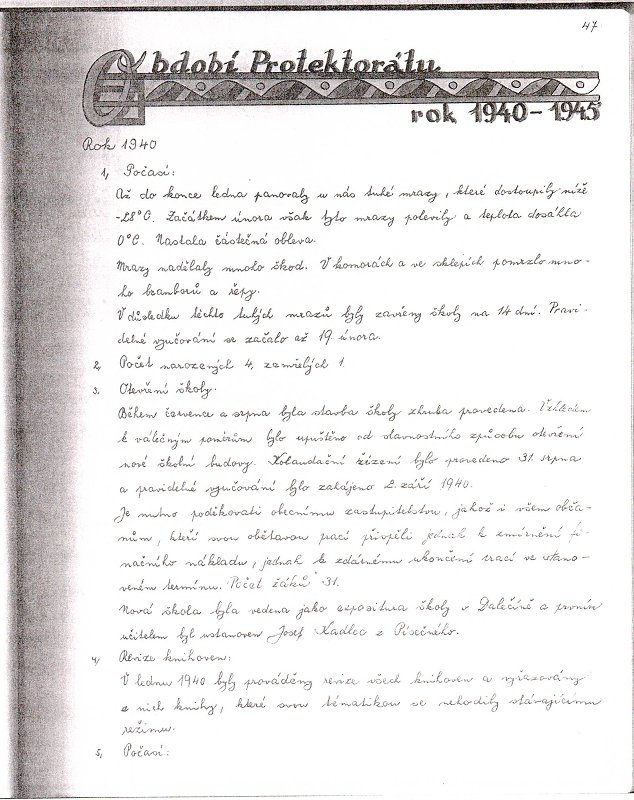 47
Období Protektorátu
rok 1940-1945
Rok 1940
1, Počasí:
Až do konce ledna panovaly u nás tuhé mrazy, které dostoupily níže
-28°C. Začátkem února však tyto mrazy polevily a teplota dosáhla
0°C. Nastala částečná obleva.
Mrazy nadělaly mnoho škod. V komorách a ve sklepích pomrzlo mno-
ho bramborů a řepy.
V důsledku těchto tuhých mrazů byly zavřeny školy na 14 dní. Pravi-
delné vyučování se začalo až 19. února.
2, Počet narozených 4, zemřelých 1.
3. Otevření školy.
Během července a srpna byla stavba školy zhruba provedena. Vzhledem
k válečným poměrům bylo upuštěno od slavnostního způsobu otevření
nové školní budovy. Kolaudační řízení bylo provedeno 31. srpna
a pravidelné vyučování bylo zahájeno 2. září 1940.
Je nutno poděkovati obecnímu zastupitelstvu, jakož i všem obča-
nům, kteří svou obětavou prací přispěli jednak k zmírnění fi-
nančního nákladu, jednak k zdárnému ukončení prací ve stano-
veném termínu. Počet žáků 31.
Nová škola byla vedena jako expositura školy v Dalečíně a prvním
učitelem byl ustanoven Josef Kadlec z Písečného.
4, Revize knihoven:
V lednu 1940 byly prováděny revize všech knihoven a vyřazovány
z nich knihy, které svou tématikou se nehodily stávajícímu
režimu.
5, Počasí: